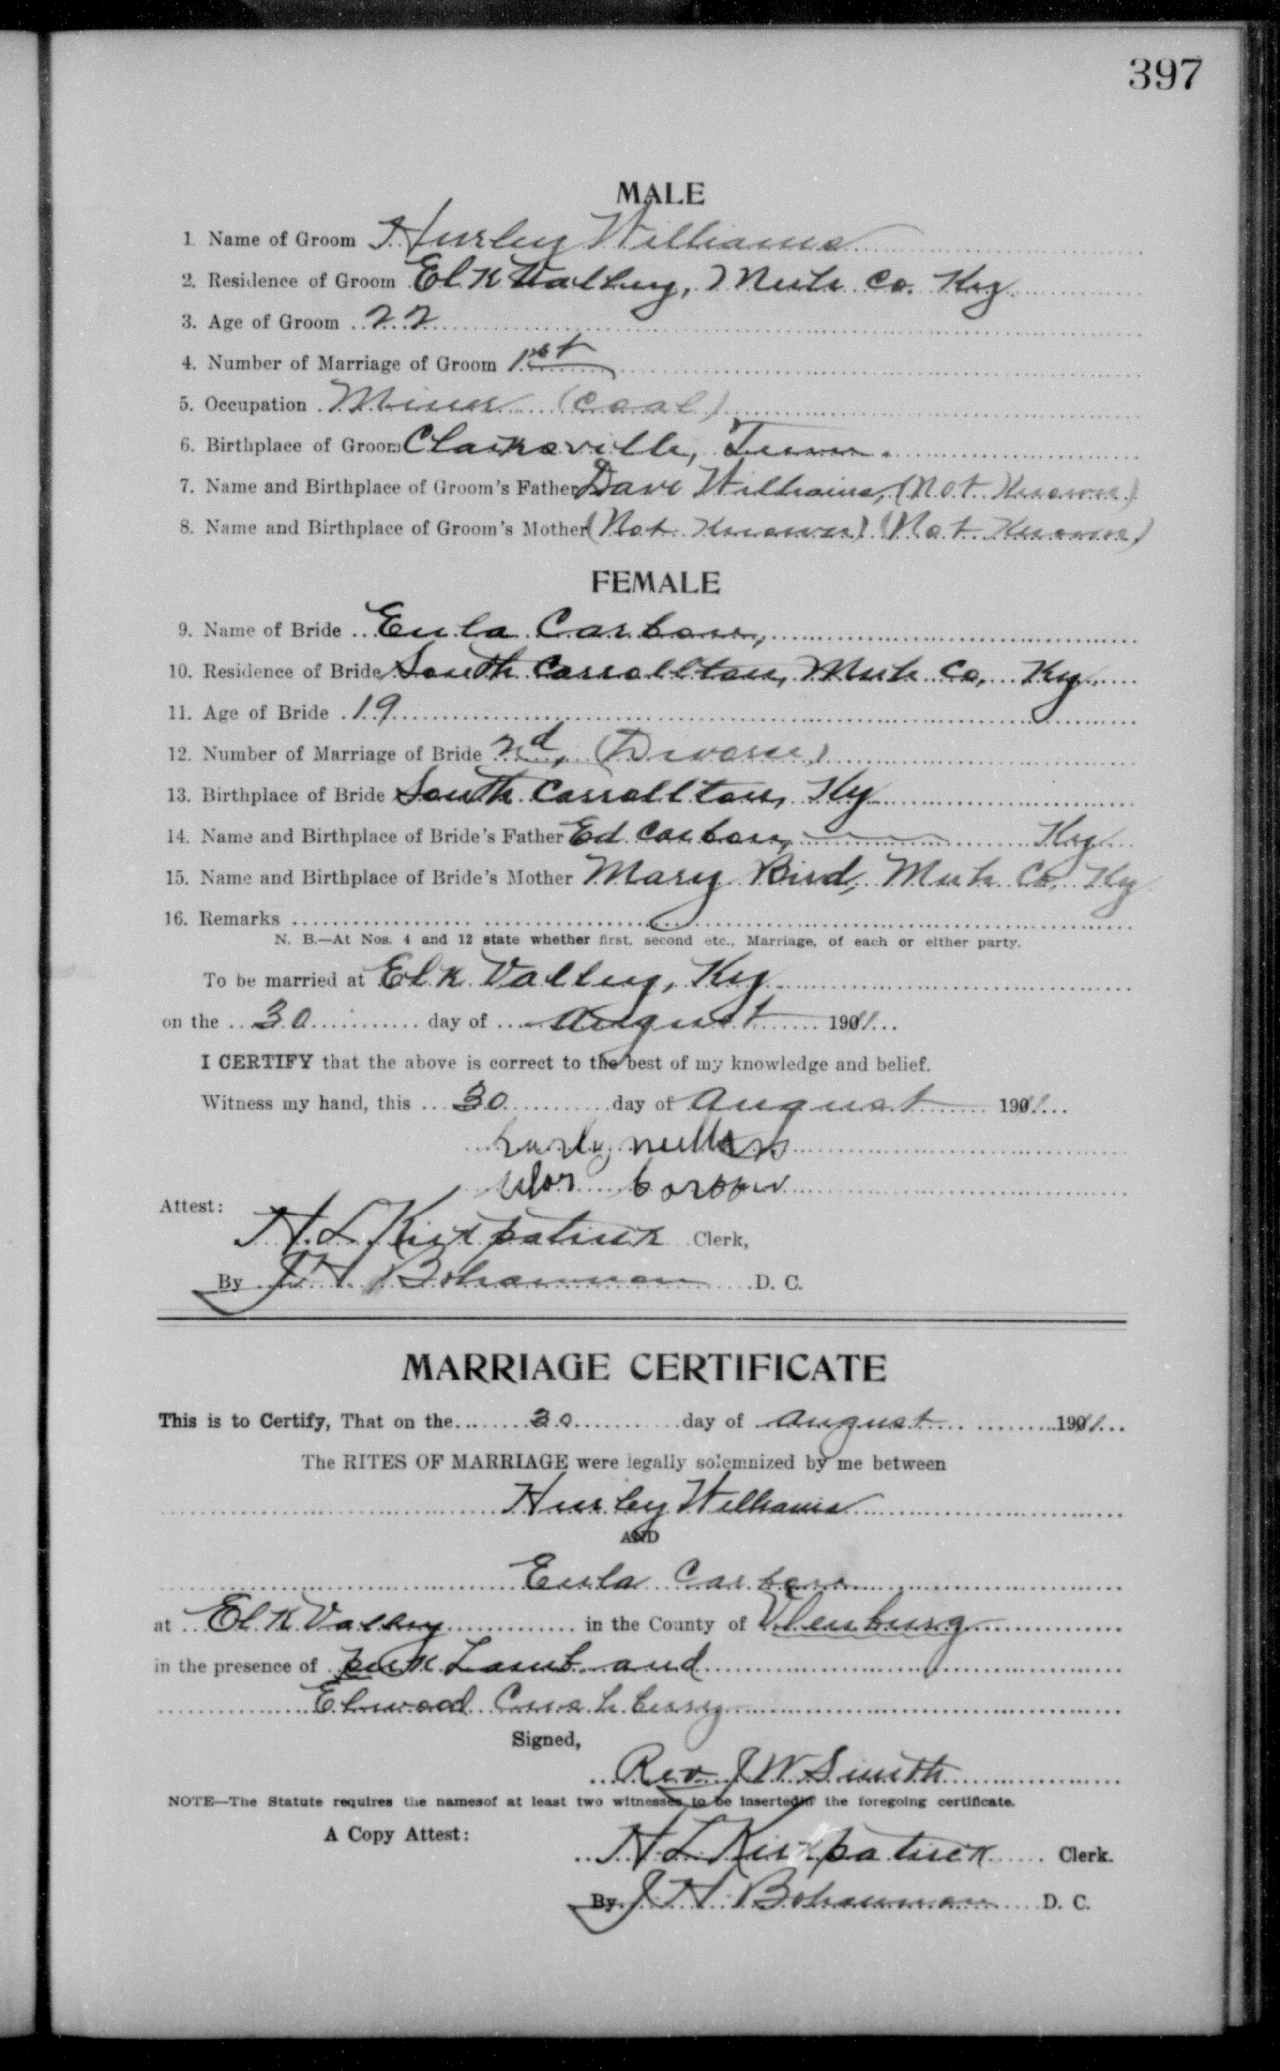 397
MALE
1. Name of Groom Hurley Williams
2. Residence of Groom Elk Valley, Muh. Co. Ky.
3. Age of Groom 22
4. Number of Marriage of Groom 1st
5. Occupation Miner (Coal)
6. Birthplace of Groom Clarksville, Tenn.
7. Name and Birthplace of Groom's Father Dave Williams, (Not Known)
8. Name and Birthplace of Groom's Mother (Not Known) (Not Known)
FEMALE
9. Name of Bride Eula
10. Residence of Bride South Carrollton, Muh. Co, Ky.
11. Age of Bride 19
12. Number of Marriage of Bride 2nd, (Divorce)
13. Birthplace of Bride South Carrollton, Ky
14. Name and Birthplace of Bride's Father Ed Ky.
15. Name and Birthplace of Bride's Mother Mary Bird, Muh. Co. Ky
16. Remarks
N. B.—At Nos. 4 and 12 state whether first, second etc., Marriage, of each or either party.
To be married at Elk Valley, Ky.
on the 30 day of August 1911
I CERTIFY that the above is correct to the best of my knowledge and belief.
Witness my hand, this 30 day of August 1911
Attest:
H. L. Kirkpatrick Clerk,
By J H Bohannon D. C.
MARRIAGE CERTIFICATE
This is to Certify, That on the 30 day of August 1911
The RITES OF MARRIAGE were legally solemnized by me between
Hurley Williams
AND
Eula
at Elk Valley in the County of
in the presence of Lamb and
Elwood
Signed,
Rev. J W Smith
NOTE—The Statute requires the namesof at least two witnesses to be insertedin the foregoing certificate.
A Copy Attest:
H L Kirkpatrick Clerk.
By J H Bohannon D. C.